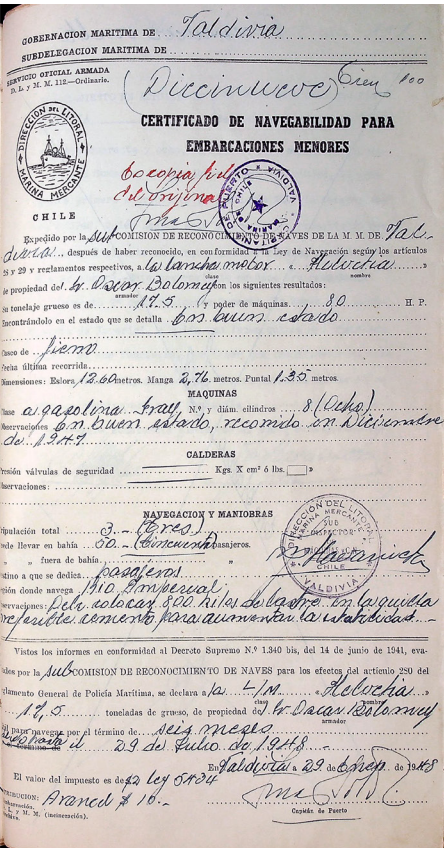 GOBERNACION MARITIMA DE Valdivia
SUBDELEGACION MARITIMA DE
SERVICIO OFICIAL ARMADA
D. L. y M. M. 112.—Ordinario.
(Diecinueve)
CERTIFICADO DE NAVEGABILIDAD PARA
EMBARCACIONES MENORES
DIRECCION DEL LITORAL
MARINA MERCANTE
CHILE
Es copia fiel
del original
CAPITANIA DE PUERTO
VALDIVIA
Expedido por la sub COMISION DE RECONOCIMIENTO DE NAVES DE LA M. M. DE Val-
divia, después de haber reconocido, en conformidad a la Ley de Navegación según los artículos
26 y 29 y reglamentos respectivos, a la lancha motor « Helvetia »
clase nombre
de propiedad del Sr. Oscar Bolomey con los siguientes resultados:
armador
Su tonelaje grueso es de 17.5 y poder de máquinas 80 H. P.
Encontrándolo en el estado que se detalla En buen estado
Casco de fierro
Fecha última recorrida
Dimensiones: Eslora 12.60 metros. Manga 2,76 metros. Puntal 1.35 metros
MAQUINAS
Clase a gasolina Gray N.º y diám. cilindros 8 (Ocho)
Observaciones En buen estado, recorrido en Diciembre
de 1947
CALDERAS
Presión válvulas de seguridad Kgs. X cm² ó lbs. »
Observaciones:
NAVEGACION Y MANIOBRAS
Tripulación total 3.- (Tres)
Puede llevar en bahía 50.- (Cincuenta) pasajeros.
„ „ fuera de bahía „
Destino a que se dedica pasajeros
Región donde navega Río Imperial
Observaciones: Debe colocar 800 kilos de lastre en la quilla
preferible cemento, para aumentar la estabilidad.-
DIRECCION DEL LITORAL
MARINA MERCANTE
SUB
INSPECTOR
CHILE
VALDIVIA
Vistos los informes en conformidad al Decreto Supremo N.º 1.340 bis, del 14 de junio de 1941, eva-
cuados por la sub COMISION DE RECONOCIMIENTO DE NAVES para los efectos del artículo 280 del
Reglamento General de Policía Marítima, se declara a la L/M. « Helvetia
clase nombre
17,5 toneladas de grueso, de propiedad del Sr Oscar Bolomey
armador
para navegar por el término de seis meses
29 de Julio de 1948
En Valdivia a 29 de Enero de 1948
El valor del impuesto es de $2 ley 5434
Arancel $ 10.-
Capitán de Puerto
DISTRIBUCION:
Embarcación.
D. L. y M. M. (incineración).
Archivo.